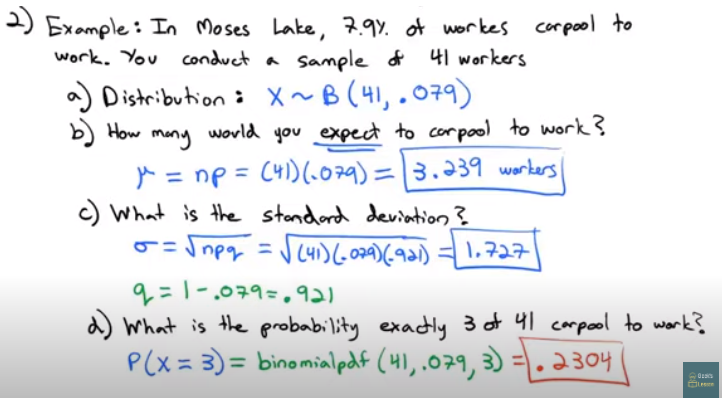 2) Example: In Moses Lake, 7.9% of workes carpool to
work. You conduct a sample of 41 workers
a) Distribution: X ~ B(41, .079)
b) How many would you expect to carpool to work?
μ = np = (41)(.079) = 3.239 workers
c) What is the standard deviation?
σ = √npq = √(41)(.079)(.921) = 1.727
q = 1 - .079 = .921
d) What is the probability exactly 3 of 41 carpool to work?
P(X = 3) = binomialpdf (41, .079, 3) = .2304